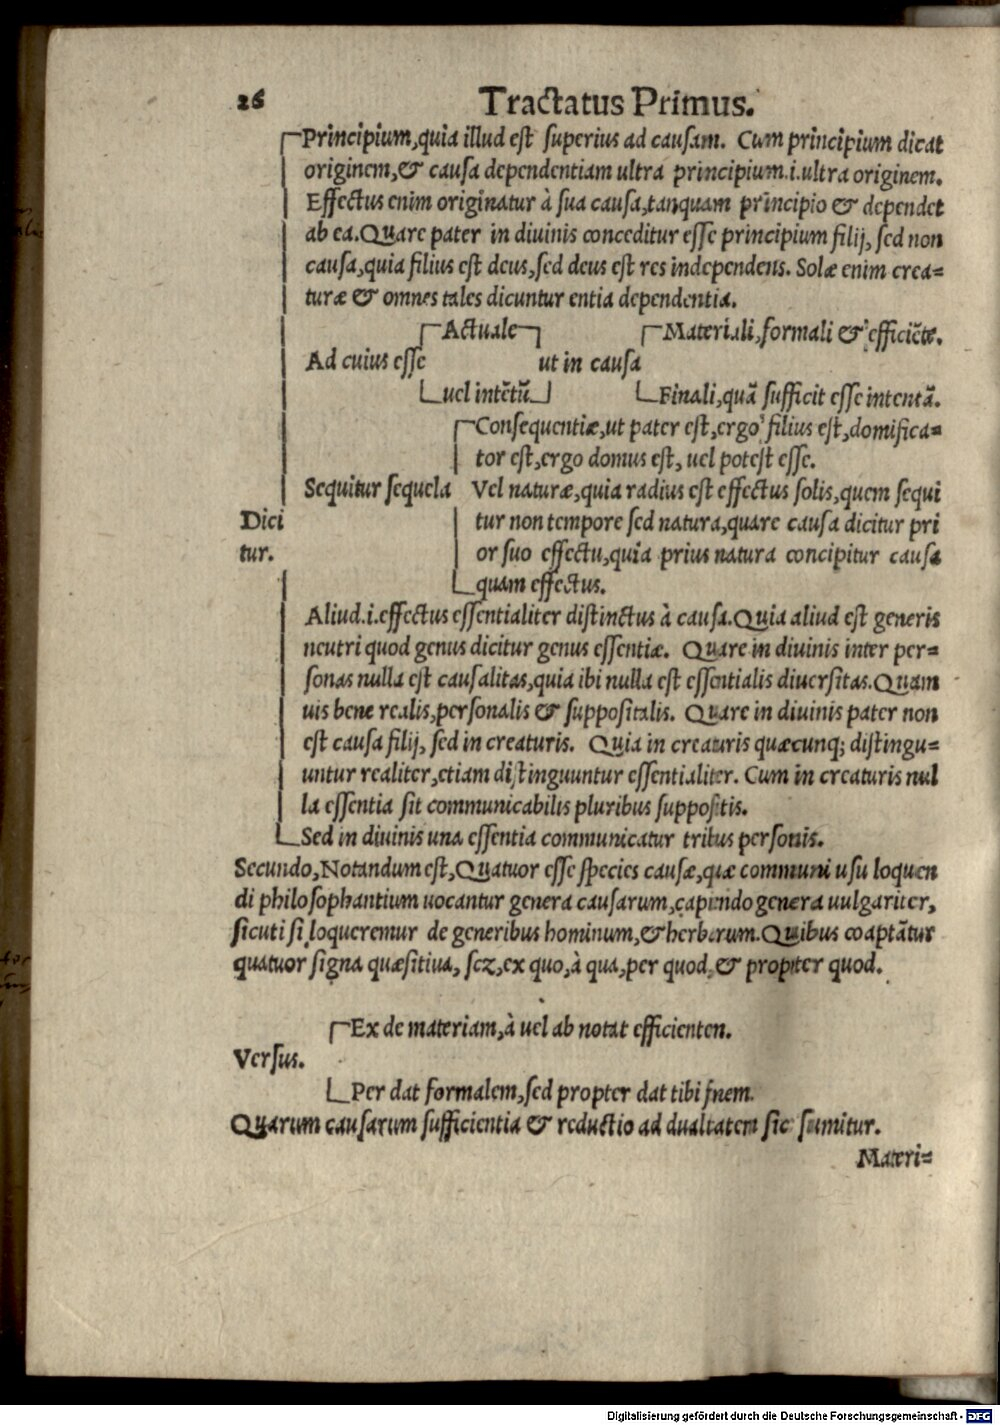 26 Tractatus Primus.
Principium, quia illud est superius ad causam. Cum principium dicat
originem, & causa dependentiam ultra principium.i.ultra originem.
Effectus enim originatur à sua causa, tanquam principio & dependet
ab ea. Quare pater in diuinis conceditur esse principium filij, sed non
causa, quia filius est deus, sed deus est res independens. Solæ enim crea=
turæ & omnes tales dicuntur entia dependentia.
Actuale Materiali, formali & efficiẽte.
Ad cuius esse ut in causa
uel intẽtũ Finali, quã sufficit esse intentã.
Consequentiæ, ut pater est, ergo filius est, domifica=
tor est, ergo domus est, uel potest esse.
Sequitur sequela Vel naturæ, quia radius est effectus solis, quem sequi
Dici tur non tempore sed natura, quare causa dicitur pri
tur. or suo effectu, quia prius natura concipitur causa
quam effectus.
Aliud.i.effectus essentialiter distinctus à causa. Quia aliud est generis
neutri quod genus dicitur genus essentiæ. Quare in diuinis inter per=
sonas nulla est causalitas, quia ibi nulla est essentialis diuersitas. Quam
uis bene realis, personalis & suppositalis. Quare in diuinis pater non
est causa filij, sed in creaturis. Quia in creaturis quæcunq; distingu=
untur realiter, etiam distinguuntur essentialiter. Cum in creaturis nul
la essentia sit communicabilis pluribus suppositis.
Sed in diuinis una essentia communicatur tribus personis.
Secundo, Notandum est, Quatuor esse species causæ, quæ communi usu loquen
di philosophantium uocantur genera causarum, capiendo genera uulgariter,
sicuti si loqueremur de generibus hominum, & herbarum. Quibus coaptãtur
quatuor signa quæsitiua, scz, ex quo, à qua, per quod, & propter quod.
Ex de materiam, à uel ab notat efficienten.
Versus.
Per dat formalem, sed propter dat tibi finem.
Quarum causarum sufficientia & reductio ad dualtatem sic sumitur.
Materi=
Digitalisierung gefördert durch die Deutsche Forschungsgemeinschaft - DFG